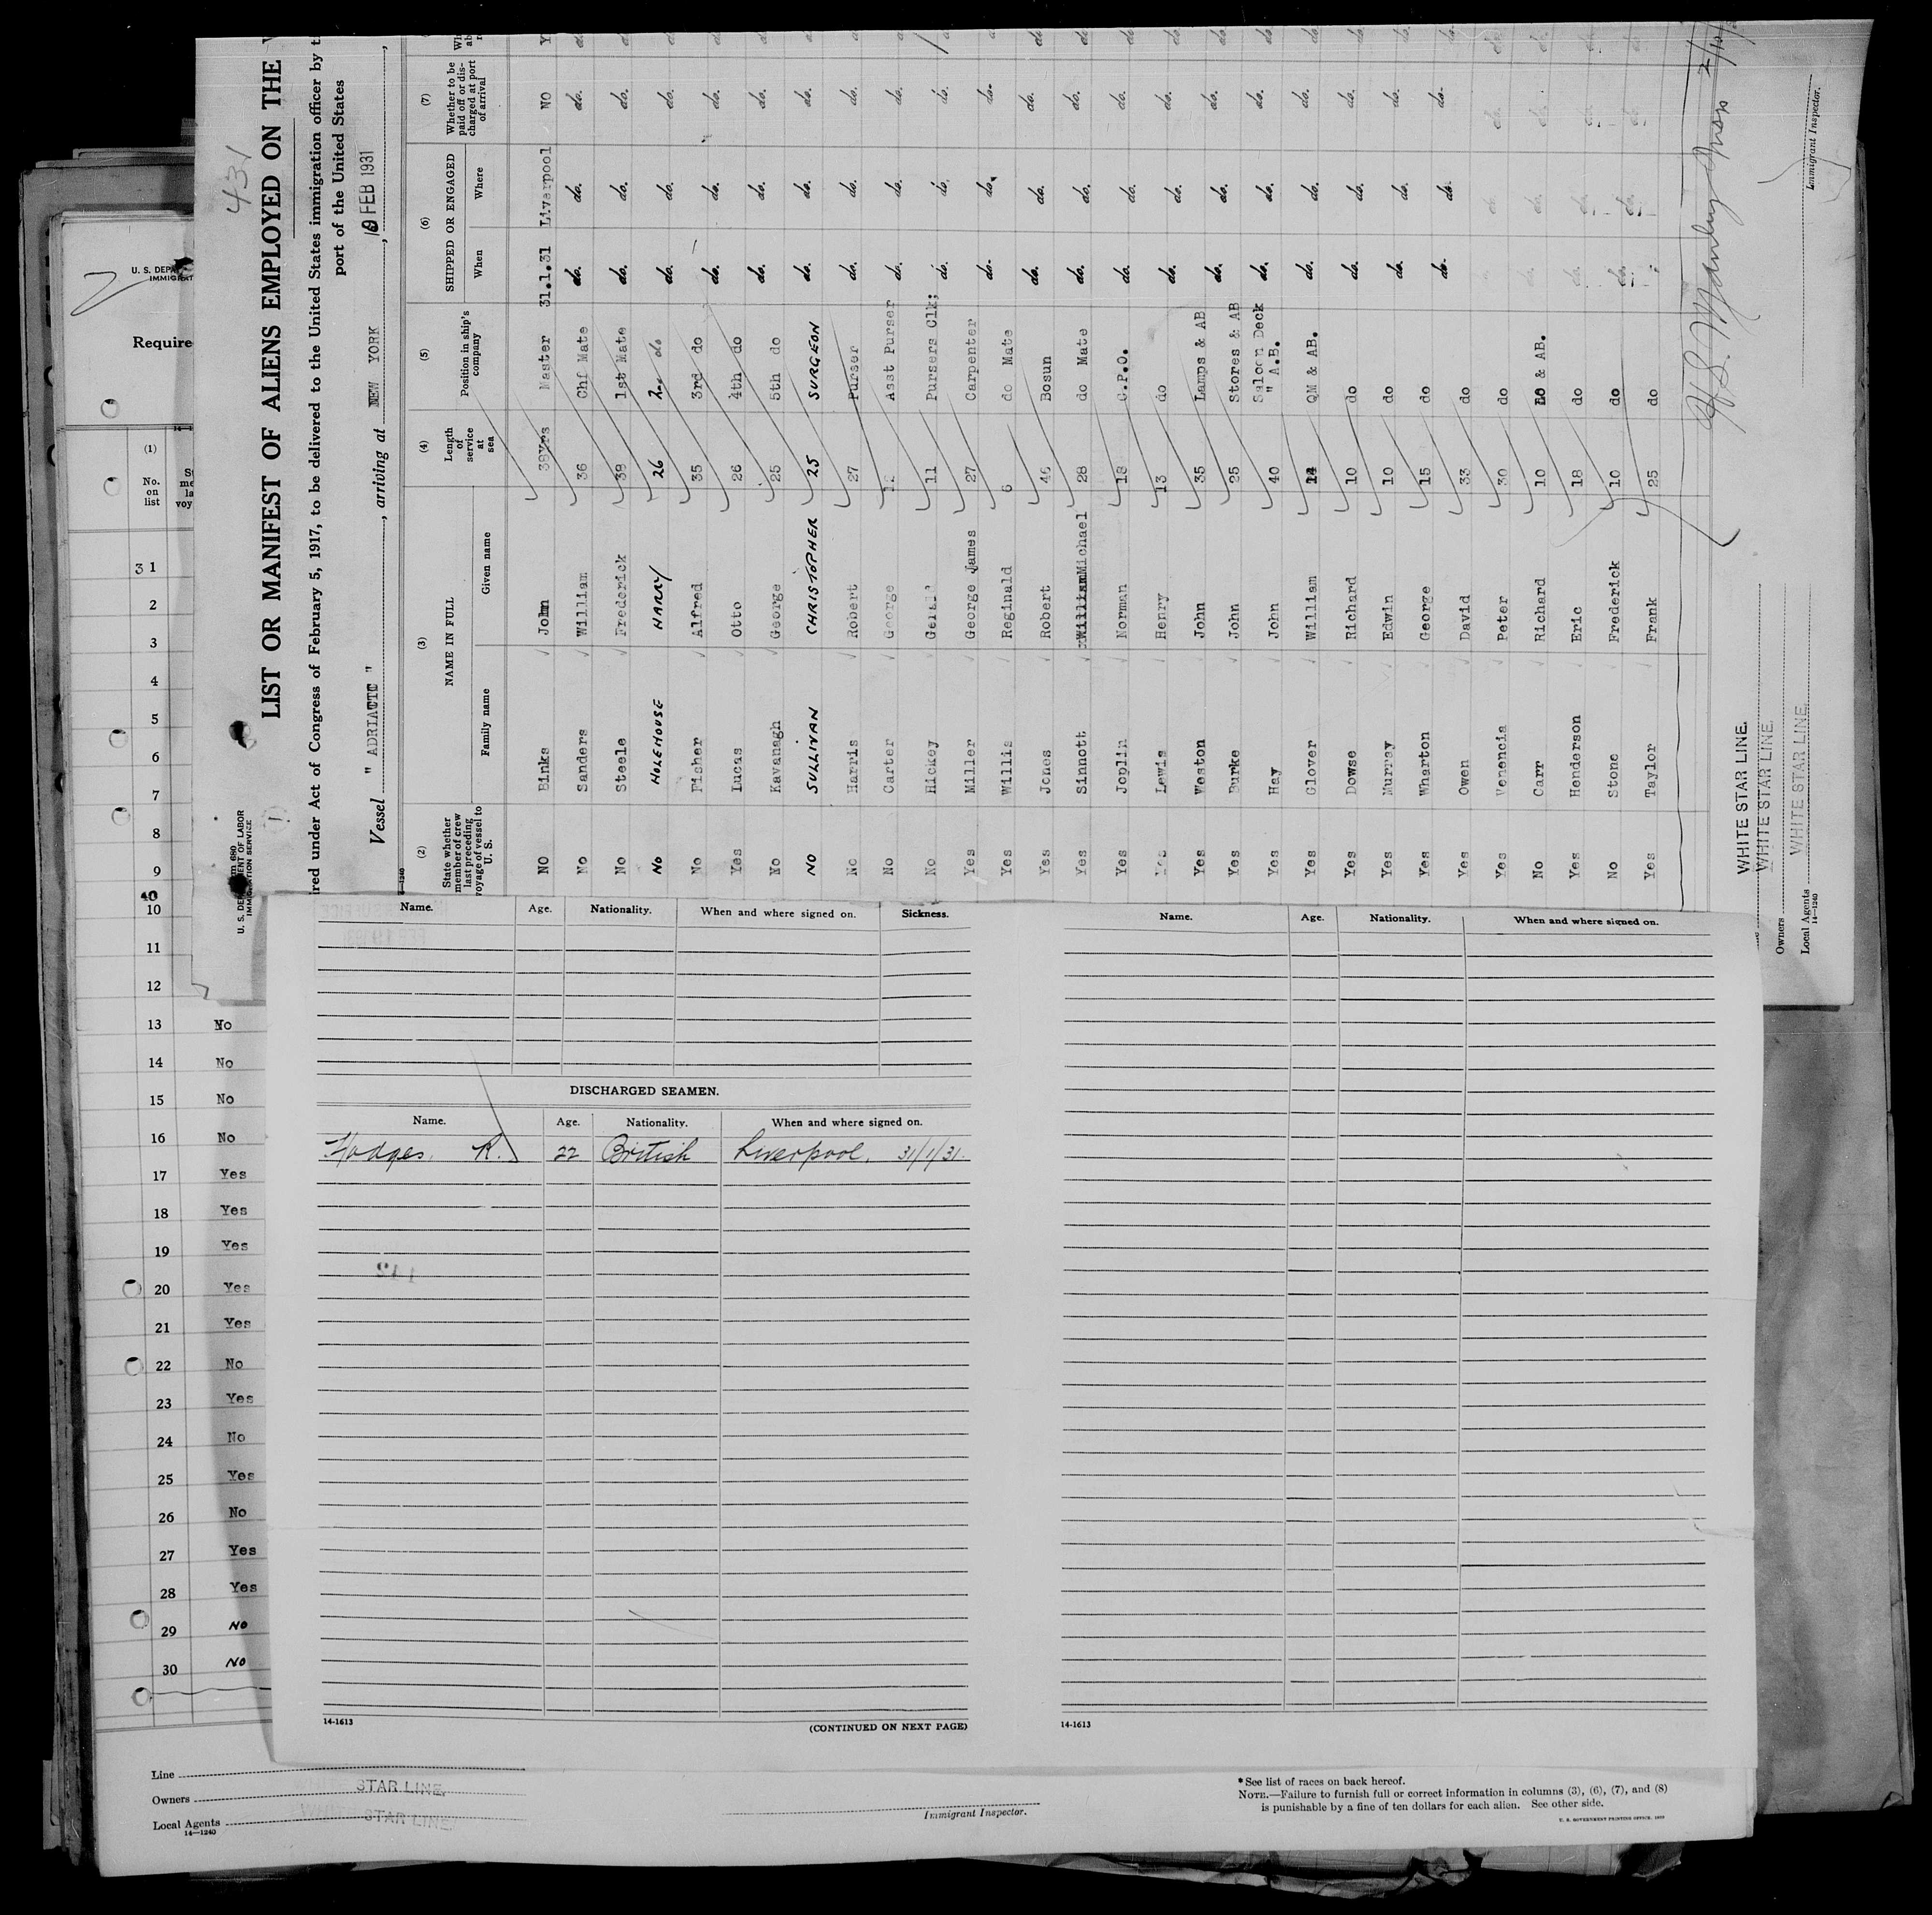 431
LIST OR MANIFEST OF ALIENS EMPLOYED ON THE
ired under Act of Congress of February 5, 1917, to be delivered to the United States immigration officer by
port of the United States
Vessel " ADRIATIC ", arriving at NEW YORK, 10 FEB 1931
U. S. DEPARTMENT OF LABOR
IMMIGRATION SERVICE
14—1240
(2) (3) (4) (5) (6) (7)
State whether member of crew last preceding voyage of vessel to U. S.
NAME IN FULL
Family name Given name
Length of service at sea
Position in ship's company
SHIPPED OR ENGAGED
When Where
Whether to be paid off or discharged at port of arrival
NO Binks John 39yrs Master 31.1.31 Liverpool NO
No Sanders William 36 Chf Mate do. do. do.
No Steele Frederick 39 1st Mate do. do. do.
NO HOLEHOUSE HARRY 26 2nd do do. do. do.
No Fisher Alfred 35 3rd do do. do. do.
Yes Lucas Otto 26 4th do do. do. do.
No Kavanagh George 25 5th do do. do. do.
NO SULLIVAN CHRISTOPHER 25 SURGEON do. do. do.
No Harris Robert 27 Purser do. do. do.
No Carter George Asst Purser do. do. do.
No Hickey 11 Pursers Clk; do. do. do.
Yes Miller George James 27 Carpenter do. do. do.
Yes Willis Reginald 6 do Mate do. do. do.
Yes Jones Robert Bosun do. do. do.
Yes Sinnott Michael 28 do Mate do. do. do.
Yes Joplin Norman 18 C.P.O. do. do. do.
Lewis Henry 13 do do. do. do.
Yes Weston John 35 Lamps & AB do. do. do.
Yes Burke John 25 Stores & AB do. do. do.
Yes Hay John 40 Saloon Deck " A.B. do. do. do.
Yes Glover William QM & AB. do. do. do.
Yes Dowse Richard 10 do do. do. do.
Yes Murray Edwin 10 do do. do. do.
Yes Wharton George 15 do do. do. do.
Yes Owen David 33 do do. do. do.
Yes Venencia Peter 30 do do. do. do.
No Carr Richard 10 & AB. do. do. do.
Yes Henderson Eric 18 do do. do. do.
No Stone Frederick 10 do do. do. do.
Yes Taylor Frank 25 do
WHITE STAR LINE.
Owners WHITE STAR LINE.
Local Agents WHITE STAR LINE.
14—1240
Immigrant Inspector.
U. S. DEPA
IMMIGRAT
Require
(1)
No. on list
31
2
3
4
5
6
7
8
9
40
10
11
12
13 No
14 No
15 No
16 No
17 Yes
18 Yes
19 Yes
20 Yes
21 Yes
22 No
23 Yes
24 No
25 Yes
26 No
27 Yes
28 Yes
29 NO
30 NO
Name. Age. Nationality. When and where signed on. Sickness.
DISCHARGED SEAMEN.
Name. Age. Nationality. When and where signed on.
Hodges, R. 22 British Liverpool, 31/1/31.
14-1613 (CONTINUED ON NEXT PAGE)
Name. Age. Nationality. When and where signed on.
14-1613
Line
Owners STAR LINE.
Local Agents STAR LINE.
14—1240
Immigrant Inspector.
*See list of races on back hereof.
NOTE.—Failure to furnish full or correct information in columns (3), (6), (7), and (8)
is punishable by a fine of ten dollars for each alien. See other side.
U. S. GOVERNMENT PRINTING OFFICE